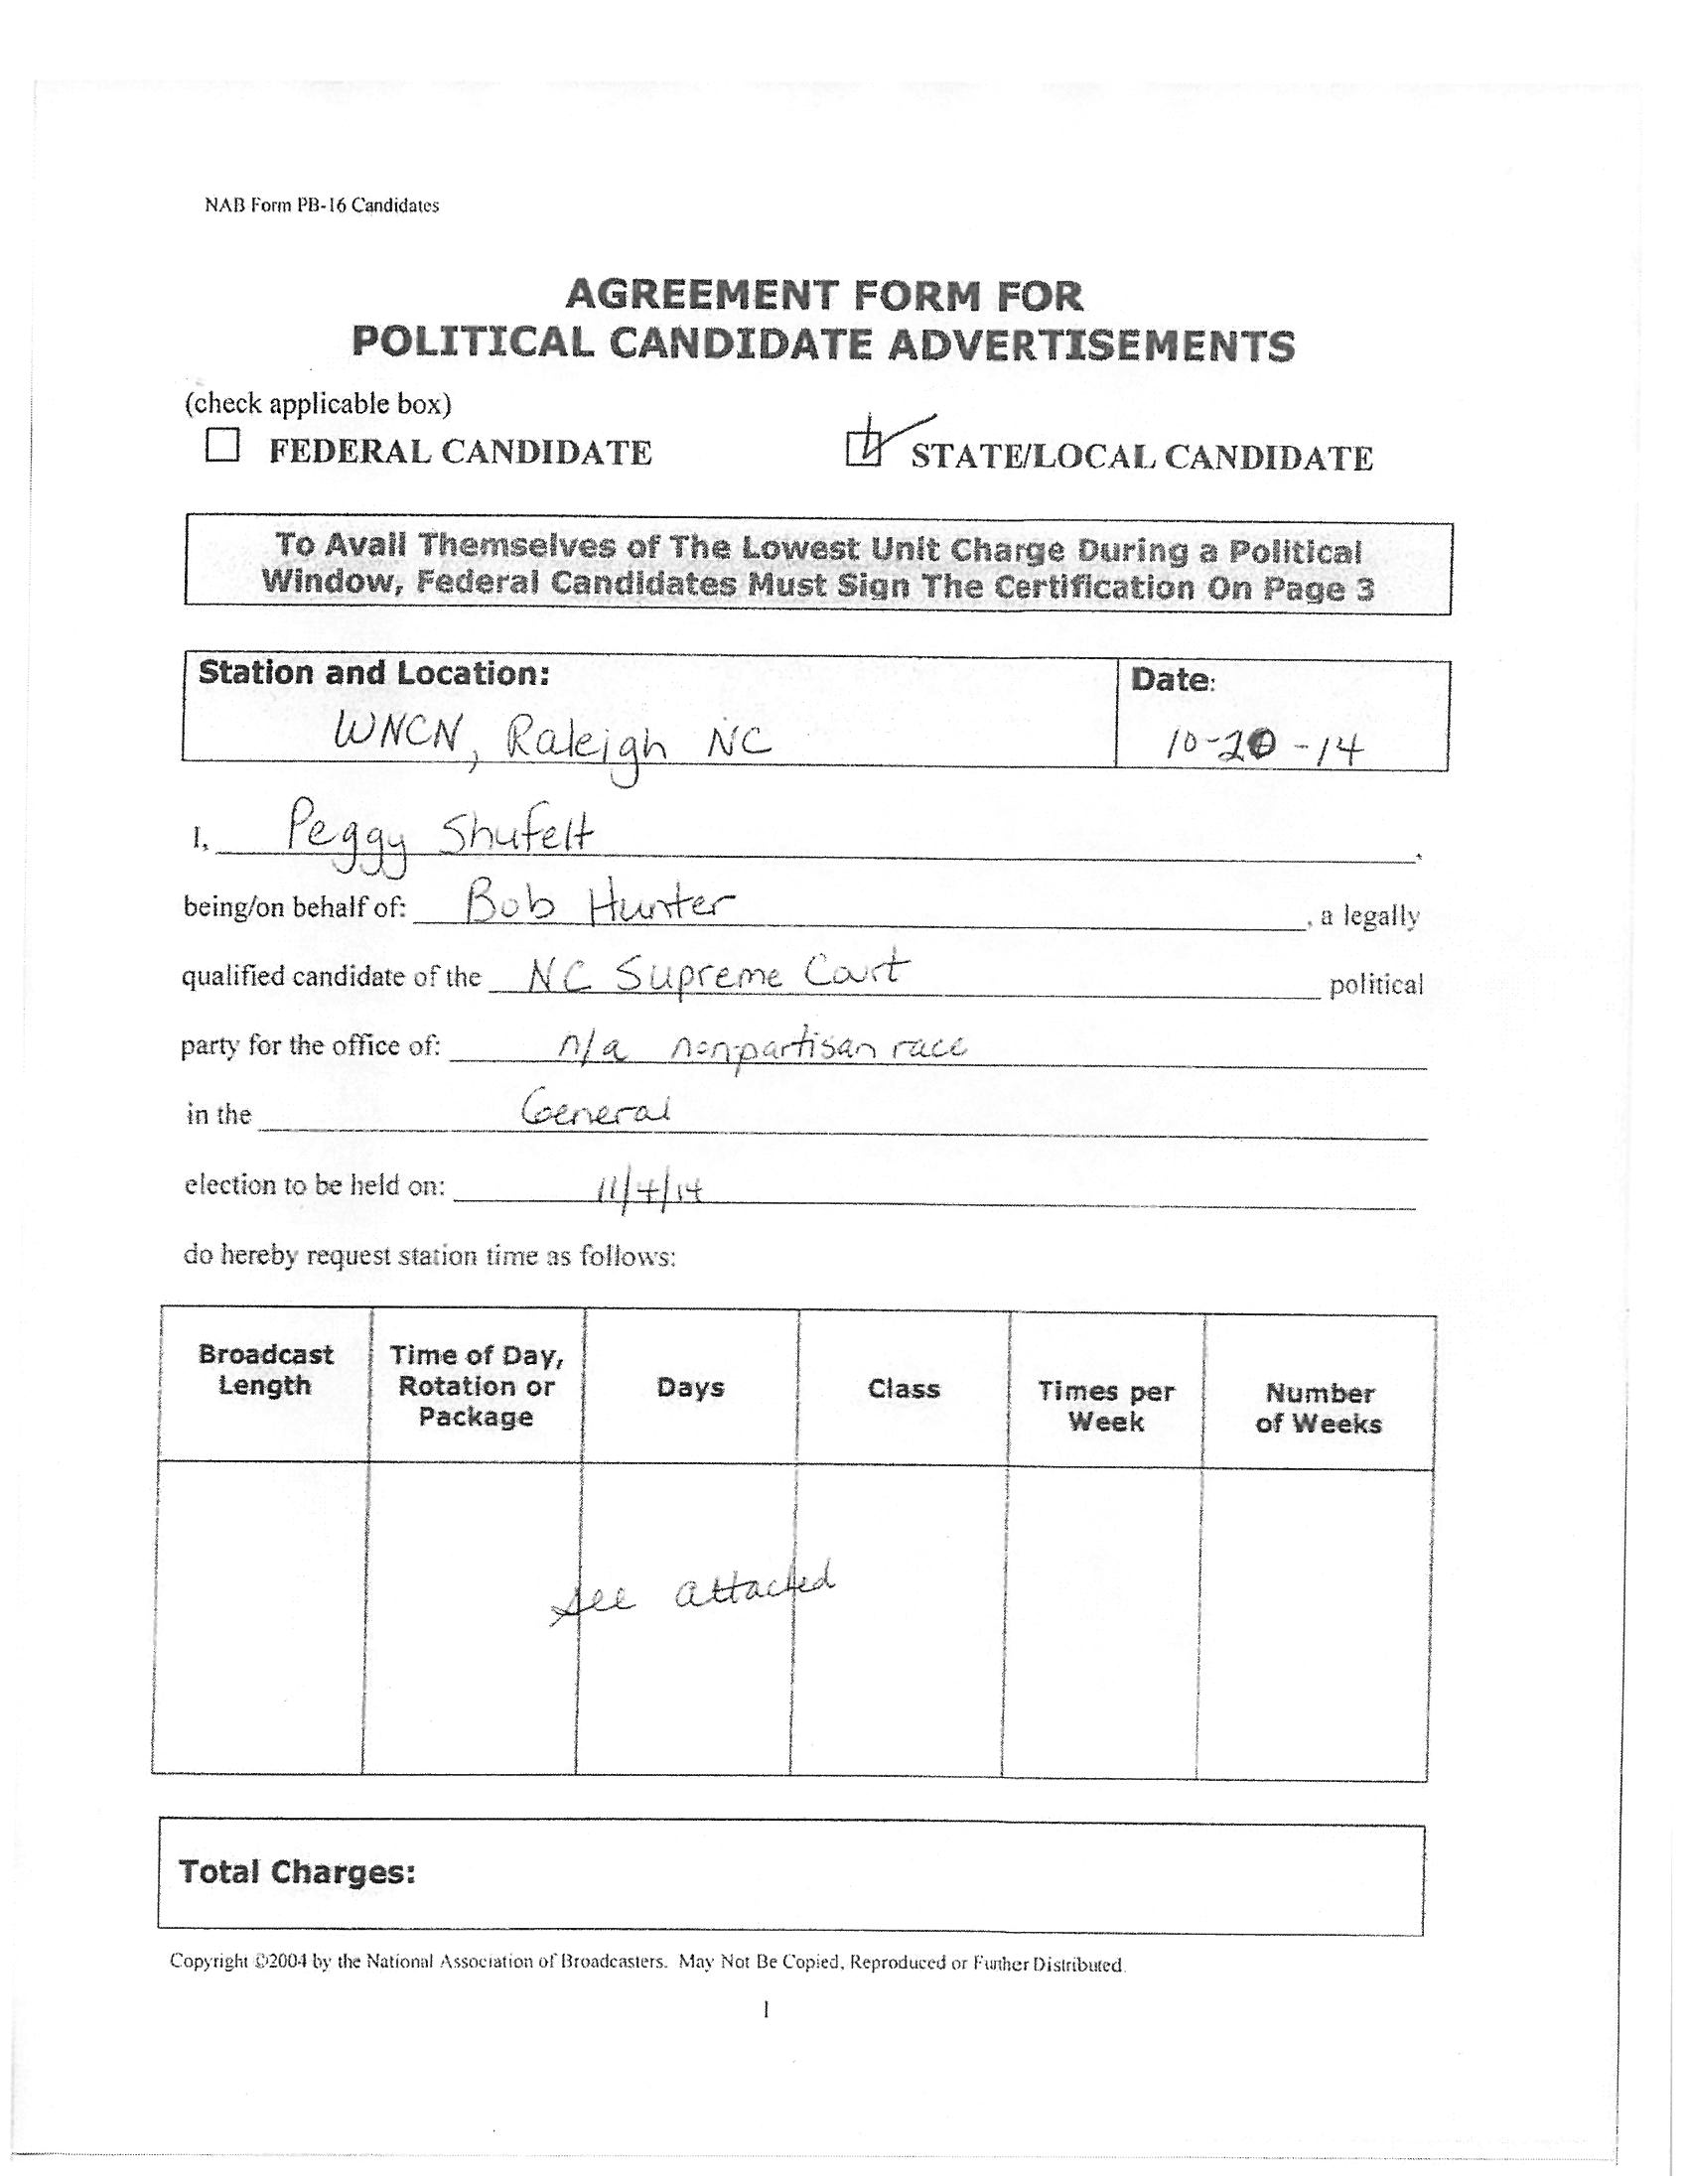 NAB Form PB-16 Candidates
AGREEMENT FORM FOR
POLITICAL CANDIDATE ADVERTISEMENTS
(check applicable box)
☐ FEDERAL CANDIDATE ☑ STATE/LOCAL CANDIDATE
To Avail Themselves of The Lowest Unit Charge During a Political
Window, Federal Candidates Must Sign The Certification On Page 3
Station and Location: Date:
WNCN, Raleigh NC 10-20-14
I, Peggy Shufelt,
being/on behalf of: Bob Hunter, a legally
qualified candidate of the NC Supreme Court political
party for the office of: n/a nonpartisan race
in the General
election to be held on: 11/4/14
do hereby request station time as follows:
Broadcast Length Time of Day, Rotation or Package Days Class Times per Week Number of Weeks
see attached
Total Charges:
Copyright ©2004 by the National Association of Broadcasters. May Not Be Copied, Reproduced or Further Distributed.
1